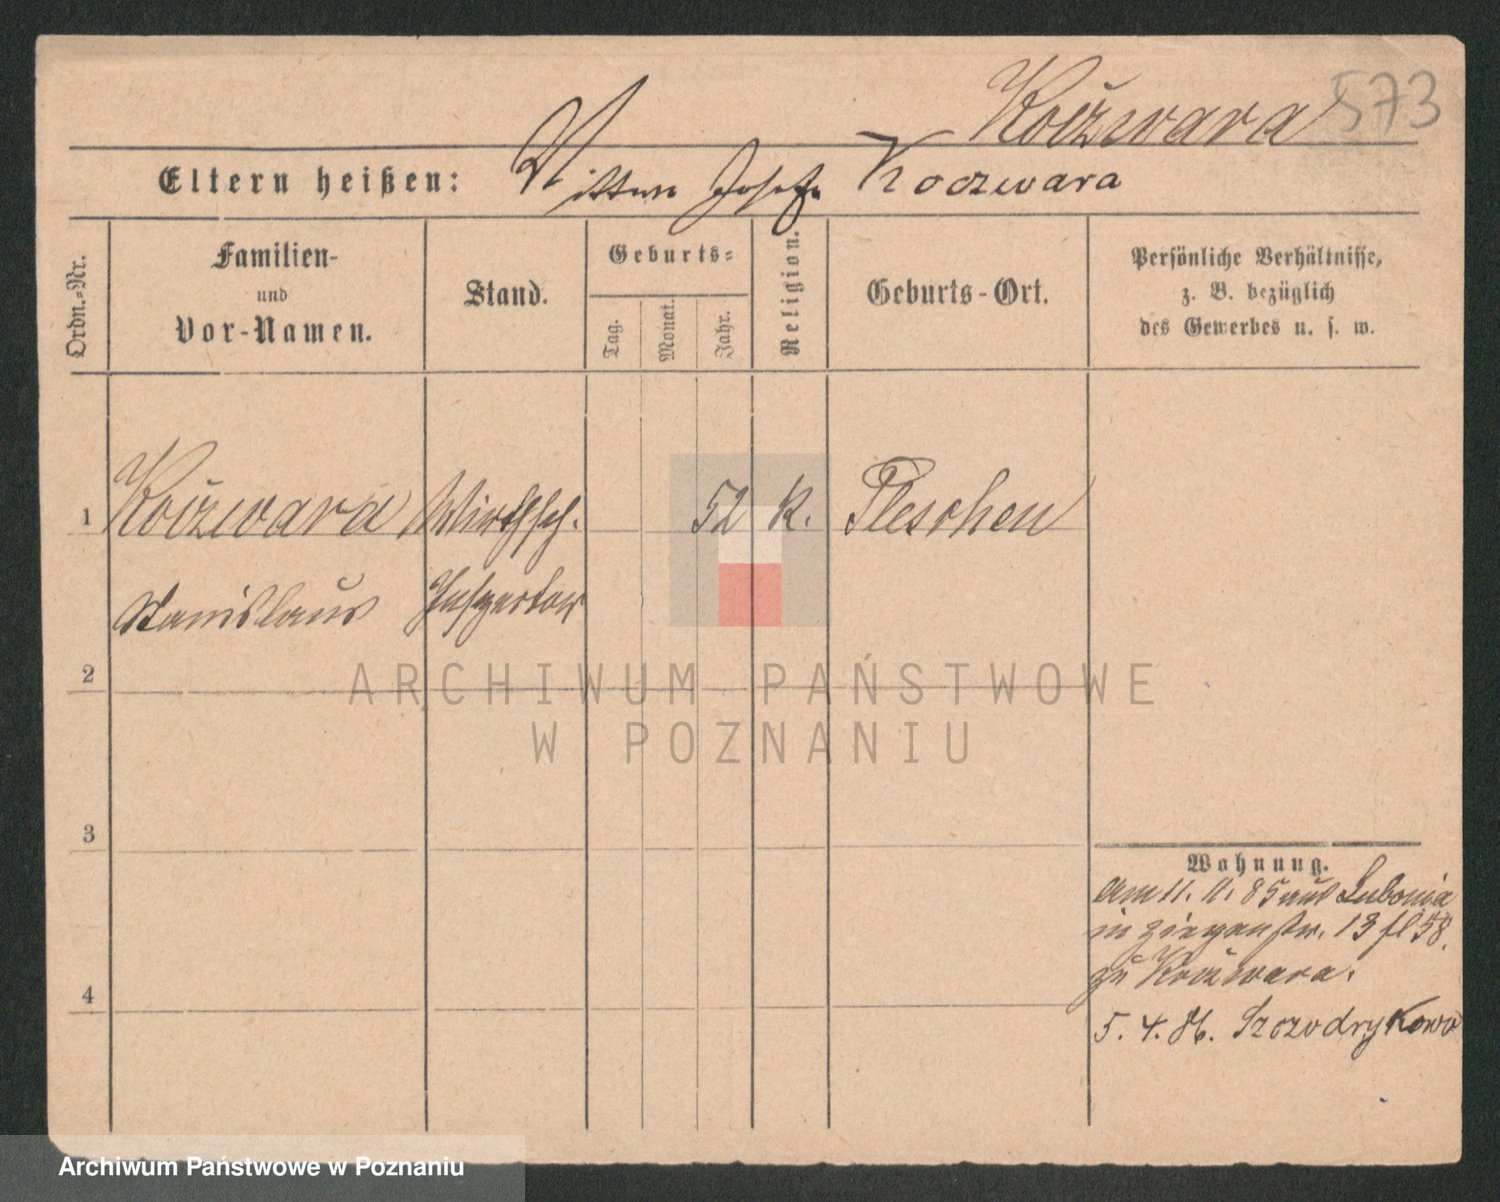 Koczwara 573
Eltern heißen: Koczwara
Ordn.=Nr.
Familien-
und
Vor-Namen.
Stand.
Geburts=
Tag.
Monat.
Jahr.
Religion.
Geburts-Ort.
Persönliche Verhältnisse,
z. B. bezüglich
des Gewerbes u. s. w.
1 Koczwara Wirthsch. 52 k. Pleschen
Stanislaus Inspector
2
3
4
Wohnung.
am 11. 11. 85 aus Lubonia
in Ziegenstr. 13 fl 58.
zu Koczwara.
5. 4. 86. Szczodrykowo
ARCHIWUM PAŃSTWOWE
W POZNANIU
Archiwum Państwowe w Poznaniu